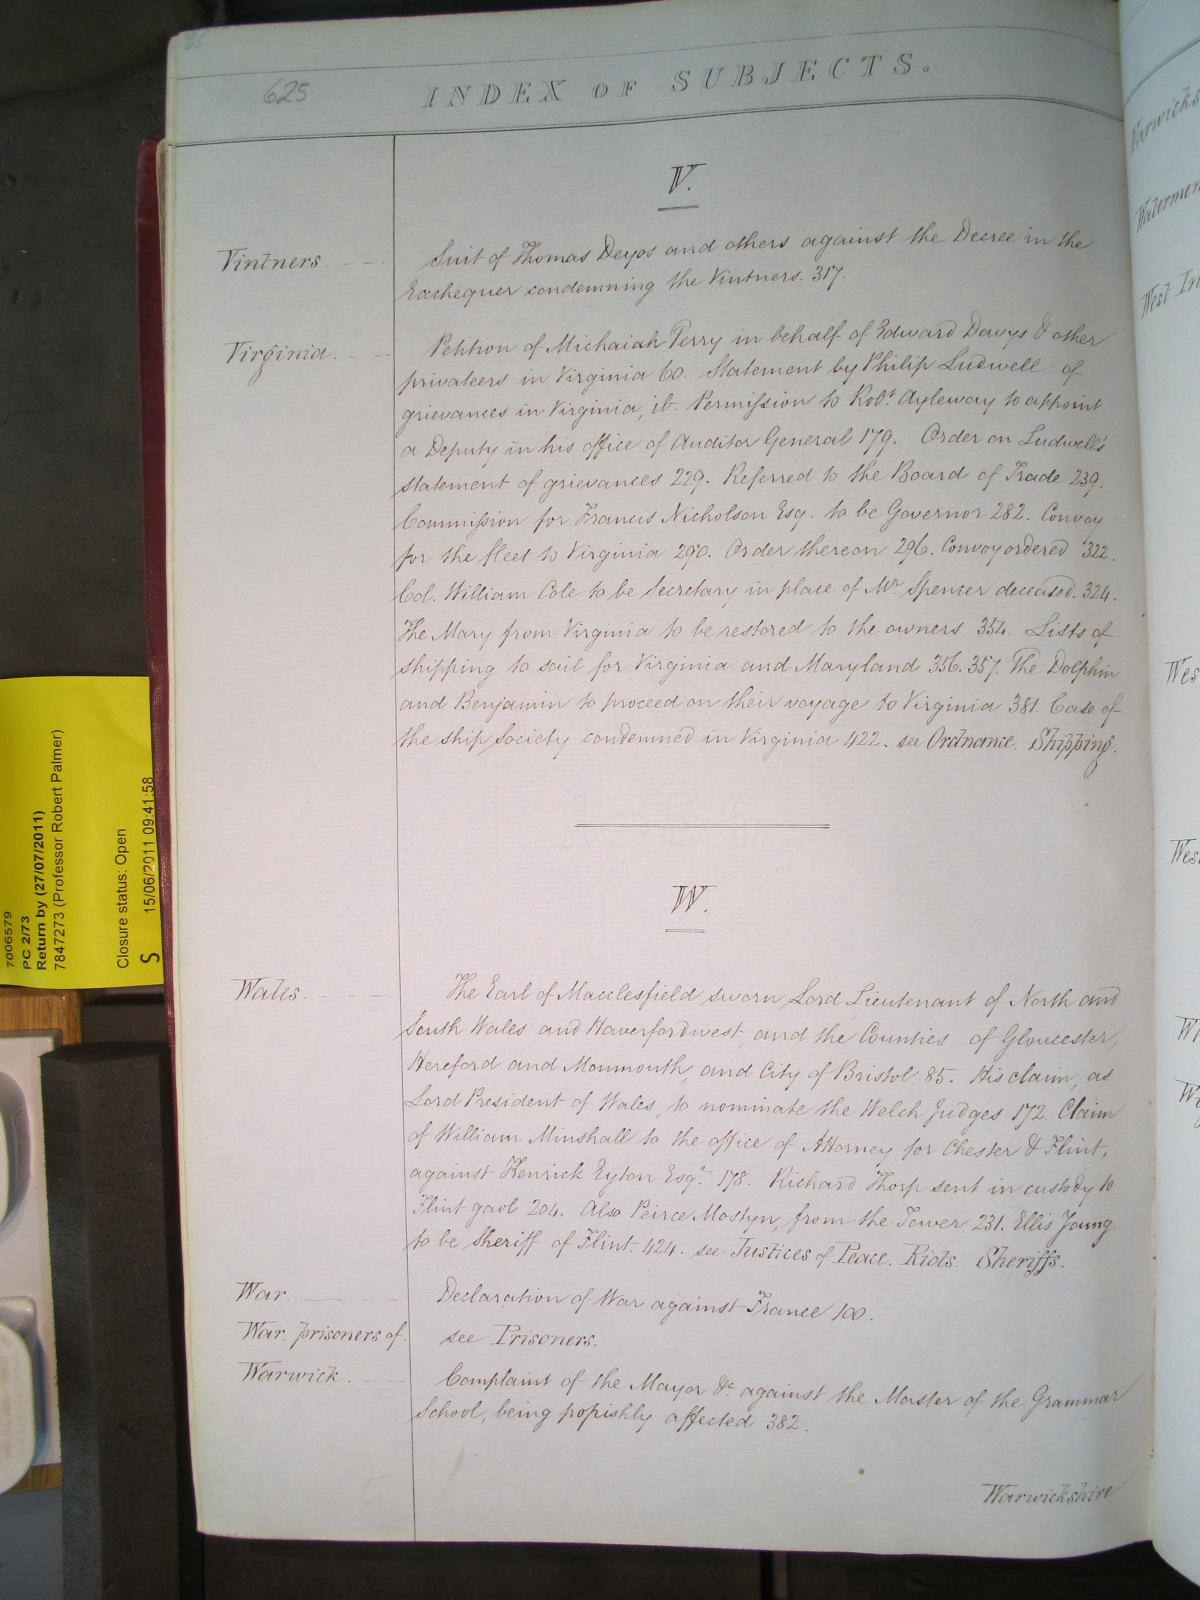 625
INDEX OF SUBJECTS.
V.
Vintners.
Suit of Thomas Deyos and others against the Decree in the
Exchequer condemning the Vintners. 317.
Virginia.
Petition of Michaiah Perry in behalf of Edward Davys & other
privateers in Virginia 60. Statement by Philip Ludwell of
grievances in Virginia, ib. Permission to Robt. Ayleway to appoint
a Deputy in his office of Auditor General 179. Order on Ludwell's
statement of grievances 229. Referred to the Board of Trade 239.
Commission for Francis Nicholson Esq. to be Governor 282. Convoy
for the fleet to Virginia 290. Order thereon 296. Convoy ordered 322.
Col. William Cole to be Secretary in place of Mr. Spencer deceased. 324.
The Mary from Virginia to be restored to the owners 354. Lists of
shipping to sail for Virginia and Maryland 356. 357. The Dolphin
and Benjamin to proceed on their voyage to Virginia 381. Case of
the ship Society condemned in Virginia 422. see Ordnance. Shipping.
W.
Wales.
The Earl of Macclesfield sworn Lord Lieutenant of North and
South Wales and Haverfordwest, and the Counties of Gloucester,
Hereford and Monmouth, and City of Bristol. 85. His claim, as
Lord President of Wales, to nominate the Welch Judges 172. Claim
of William Minshall to the office of Attorney for Chester & Flint,
against Kenrick Eyton Esqr. 178. Richard Thorp sent in custody to
Flint gaol 204. Also Peirce Mostyn, from the Tower 231. Ellis Young
to be Sheriff of Flint. 424. see Justices of Peace. Riots. Sheriffs.
War.
Declaration of War against France 100.
War, prisoners of.
see Prisoners.
Warwick.
Complaint of the Mayor &c. against the Master of the Grammar
School, being popishly affected 382.
Warwickshire
7006579
PC 2/73
Return by (27/07/2011)
7847273 (Professor Robert Palmer)
Closure status: Open
S
15/06/2011 09:41:58
Warwicks
Watermen
West In
Wes
Wes